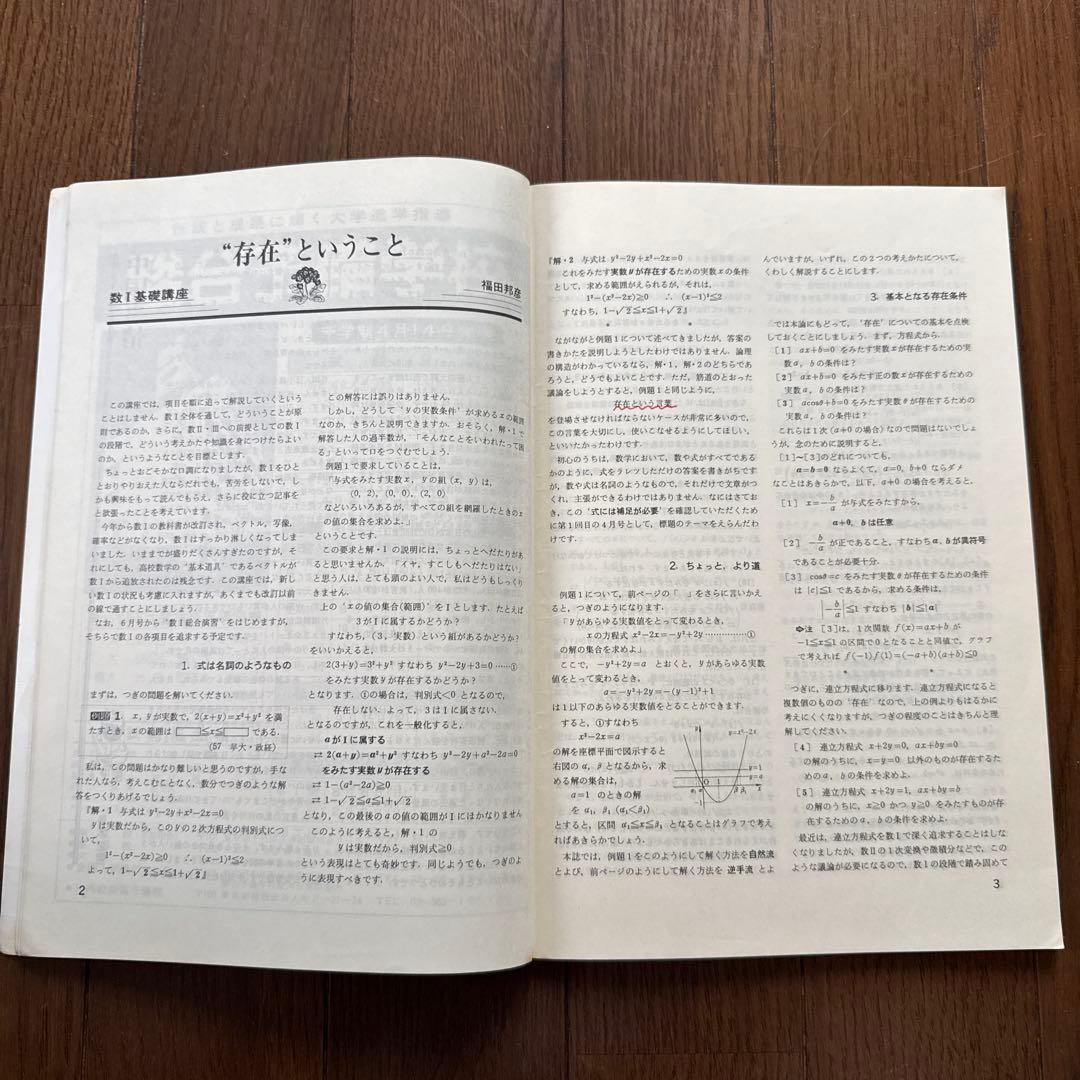 “存在”ということ
数Ⅰ基礎講座
福田邦彦
この講座では，項目を順に追って解説していくという
ことはしません．数Ⅰ全体を通して，どういうことが原
則であるのか，さらに，数Ⅱ・Ⅲへの前提としての数Ⅰ
の段階で，どういう考えかたや知識を身につけたらよい
のか，というようなことを目標とします．
ちょっとおごそかな口調になりましたが，数Ⅰをひと
とおりやりおえた人ならだれでも，苦労をしないで，し
かも興味をもって読んでもらえ，さらに役に立つ記事を
と欲張ったことを考えています．
今年から数Ⅰの教科書が改訂され，ベクトル，写像，
確率などがなくなり，数Ⅰはすっかり淋しくなってしま
いました．いままでが盛りだくさんすぎたのですが，そ
れにしても，高校数学の“基本道具”であるベクトルが
数Ⅰから追放されたのは残念です．この講座では，新し
い数Ⅰの状況も考慮に入れますが，あくまでも改訂以前
の線で通すことにしましょう．
なお，6月号から‘数Ⅰ総合演習’をはじめますが，
そちらで数Ⅰの各項目を追求する予定です．
1. 式は名詞のようなもの
まずは，つぎの問題を解いてください．
例題 1. x，yが実数で，2(x+y)=x²+y² を満
たすとき，xの範囲は □≦x≦□ である．
(57 早大・政経)
私は，この問題はかなり難しいと思うのですが，手な
れた人なら，考えこむことなく，数分でつぎのような解
答をつくりあげるでしょう．
『解・1 与式は y²−2y+x²−2x=0
yは実数だから，このyの2次方程式の判別式につ
いて，
1²−(x²−2x)≧0 ∴ (x−1)²≦2
よって，1−√2≦x≦1+√2』
2
この解答には誤りはありません．
しかし，どうして‘yの実数条件’が求めるxの範囲
なのか，きちんと説明できますか．おそらく，解・1で
解答した人の過半数が，「そんなことをいわれたって困
る」といって口をつぐむでしょう．
例題1で要求していることは，
『与式をみたす実数x，yの組(x，y)は，
(0，2)，(0，0)，(2，0)
などいろいろあるが，すべての組を網羅したときのx
の値の集合を求めよ．』
ということです．
この要求と解・1の説明には，ちょっとへだたりがあ
ると思いませんか．「イヤ，すこしもへだたりはない」
と思う人は，とても頭のよい人で，私はどうもしっくり
きません．
上の‘xの値の集合(範囲)’をIとします．たとえば
3がIに属するかどうか？
すなわち，(3，実数)という組があるかどうか？
をいいかえると，
2(3+y)=3²+y² すなわち y²−2y+3=0 ……①
をみたす実数yが存在するかどうか？
となります．①の場合は，判別式<0 となるので，
存在しない．よって，3はIに属さない．
となるのですが，これを一般化すると，
aがIに属する
⇄ 2(a+y)=a²+y² すなわち y²−2y+a²−2a=0
をみたす実数yが存在する
⇄ 1−(a²−2a)≧0
⇄ 1−√2≦a≦1+√2
となり，この最後のaの値の範囲がIにほかなりません
このように考えると，解・1の
yは実数だから，判別式≧0
という表現はとても奇妙です．同じようでも，つぎのよ
うに表現すべきです．
『解・2 与式は y²−2y+x²−2x=0
これをみたす実数yが存在するための実数xの条件
として，求める範囲がえられるが，それは，
1²−(x²−2x)≧0 ∴ (x−1)²≦2
すなわち，1−√2≦x≦1+√2』
ながながと例題1について述べてきましたが，答案の
書きかたを説明しようとしたわけではありません．論理
の構造がわかっているなら，解・1，解・2のどちらであ
ろうと，どうでもよいことです．ただ，筋道のとおった
議論をしようとすると，例題1と同じように，
存在という言葉
を登場させなければならないケースが非常に多いので，
この言葉を大切にし，使いこなせるようにしてほしい，
といいたかったわけです．
初心のうちは，数学において，数や式がすべてである
かのように，式をラレツしただけの答案を書きがちです
が，数や式は名詞のようなもので，それだけで文章がつ
くれ，主張ができるわけではありません．なにはさてお
き，この‘式には補足が必要’を確認していただくため
に第1回目の4月号として，標題のテーマをえらんだわ
けです．
2. ちょっと，より道
例題1について，前ページの「　」をさらに言いかえ
ると，つぎのようになります．
『yがあらゆる実数値をとって変わるとき，
xの方程式 x²−2x=−y²+2y ……………①
の解の集合を求めよ』
ここで，−y²+2y=a とおくと，yがあらゆる実数
値をとって変わるとき，
a=−y²+2y=−(y−1)²+1
は1以下のあらゆる実数値をとることができます．
すると，①すなわち
x²−2x=a
の解を座標平面で図示すると
右図のα，βとなるから，求
める解の集合は，
a=1 のときの解
を α₁，β₁ (α₁<β₁)
とすると，区間 α₁≦x≦β₁ となることはグラフで考え
ればあきらかでしょう．
y=x²−2x
y=1
y=a
本誌では，例題1をこのようにして解く方法を自然流
とよび，前ページのようにして解く方法を 逆手流 とよ
んでいますが，いずれ，この2つの考えかたについて，
くわしく解説することにします．
3. 基本となる存在条件
では本論にもどって，‘存在’についての基本を点検
しておくことにしましょう．まず，方程式から．
［1］ ax+b=0 をみたす実数xが存在するための実
数a，bの条件は？
［2］ ax+b=0 をみたす正の数xが存在するための
実数a，bの条件は？
［3］ acosθ+b=0 をみたす実数θが存在するための
実数a，bの条件は？
これらは1次(a≠0の場合)なので問題はないでしょ
うが，念のために説明すると，
［1］〜［3］のどれについても，
a=b=0 ならよくて，a=0，b≠0 ならダメ
なことはあきらかで，以下，a≠0 の場合を考えると，
［1］ x=−b/a が与式をみたすから，
a≠0，bは任意
［2］ −b/a が正であること，すなわちa，bが異符号
であることが必要十分．
［3］ cosθ=c をみたす実数θが存在するための条件
は |c|≦1 であるから，求める条件は，
|−b/a|≦1 すなわち |b|≦|a|
➪注 ［3］は，1次関数 f(x)=ax+b が
−1≦x≦1 の区間で0となることと同値で，グラフ
で考えれば f(−1)f(1)=(−a+b)(a+b)≦0
つぎに，連立方程式に移ります．連立方程式になると
複数個のものの‘存在’なので，上の例よりもはるかに
考えにくくなりますが，つぎの程度のことはきちんと理
解してください．
［4］ 連立方程式 x+2y=0，ax+by=0
の解のうちに，x=y=0 以外のものが存在するた
めのa，bの条件を求めよ．
［5］ 連立方程式 x+2y=1，ax+by=b
の解のうちに，x≧0 かつ y≧0 をみたすものが存
在するためのa，bの条件を求めよ．
最近は，連立方程式を数Ⅰで深く追求することはしな
くなりましたが，数Ⅱの1次変換や微積分などで，この
ような議論が必要になるので，数Ⅰの段階で踏み固めて
3